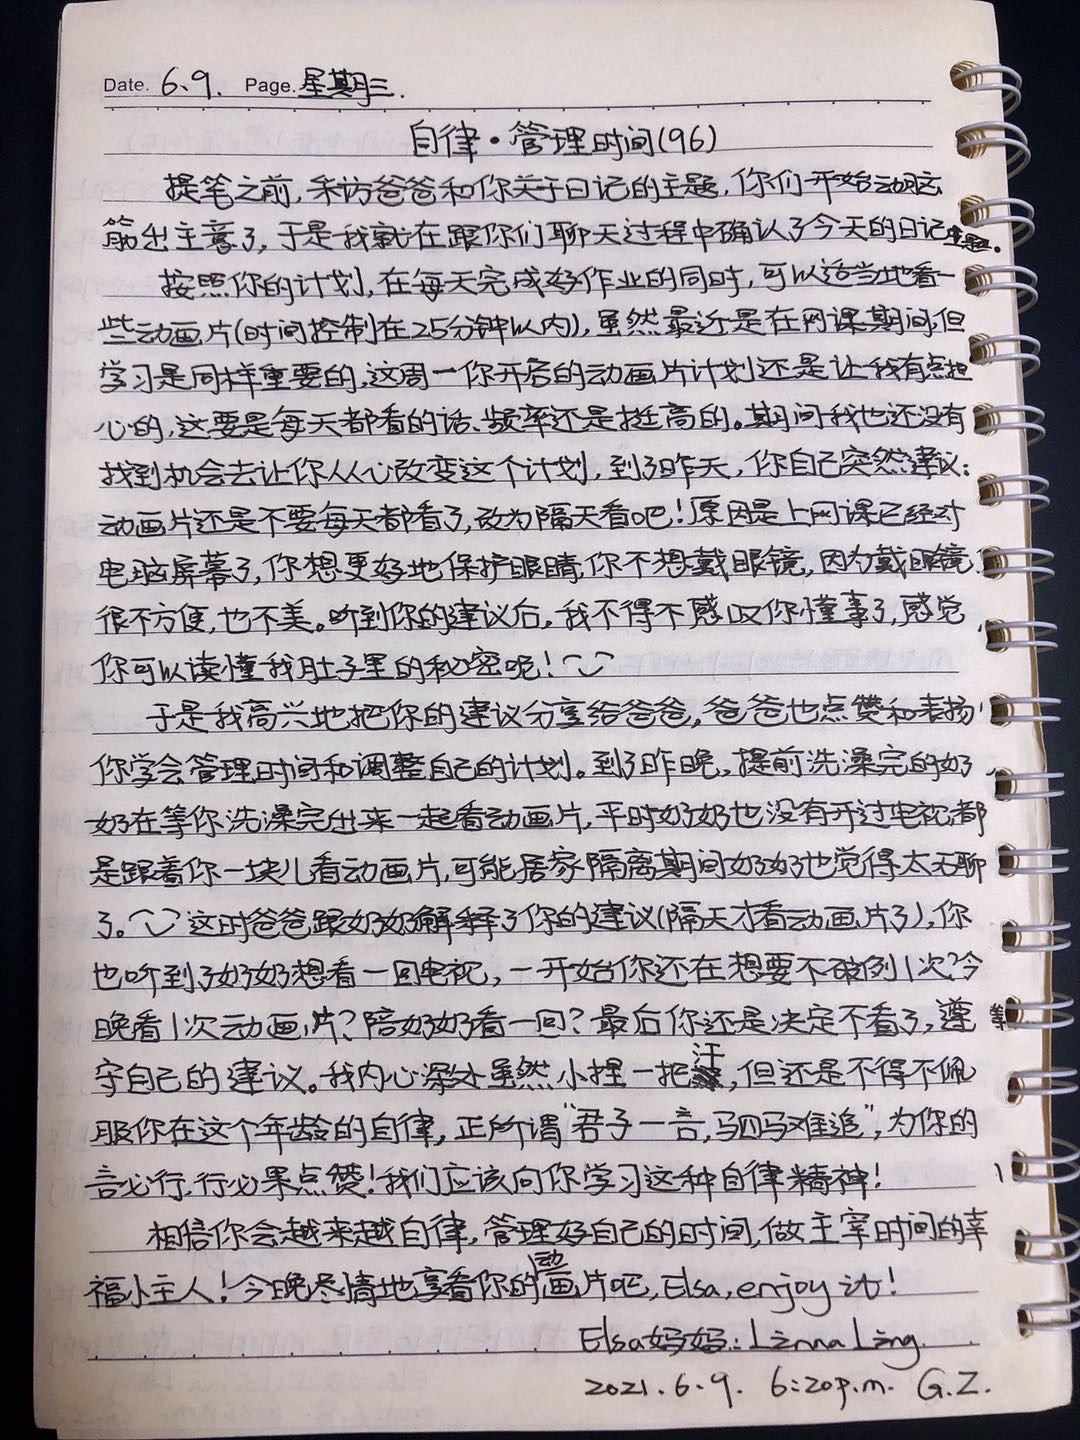 Date. 6.9. Page. 星期三.
自律·管理时间(96)
提笔之前,采访爸爸和你关于日记的主题,你们开始动脑
筋出主意了,于是我就在跟你们聊天过程中确认了今天的日记主题。
按照你的计划,在每天完成好作业的同时,可以适当地看一
些动画片(时间控制在25分钟以内),虽然最近是在网课期间,但
学习是同样重要的,这周一你开启的动画片计划还是让我有点担
心的,这要是每天都看的话、频率还是挺高的。期间我也还没有
找到机会去让你从心改变这个计划,到了昨天,你自己突然建议:
动画片还是不要每天都看了,改为隔天看吧!原因是上网课已经对
电脑屏幕了,你想更好地保护眼睛,你不想戴眼镜,因为戴眼镜
很不方便,也不美。听到你的建议后,我不得不感叹你懂事了,感觉
你可以读懂我肚子里的秘密呢!
于是我高兴地把你的建议分享给爸爸,爸爸也点赞和表扬
你学会管理时间和调整自己的计划。到了昨晚,提前洗澡完的奶
奶在等你洗澡完出来一起看动画片,平时奶奶也没有开过电视,都
是跟着你一块儿看动画片,可能居家隔离期间奶奶也觉得太无聊
了。这时爸爸跟奶奶解释了你的建议(隔天才看动画片了),你
也听到了奶奶想看一回电视,一开始你还在想要不破例1次?今
晚看1次动画片?陪奶奶看一回?最后你还是决定不看了,遵
守自己的建议。我内心深处虽然小捏一把汗,但还是不得不佩
服你在这个年龄的自律,正所谓“君子一言,驷马难追”,为你的
言必行,行必果点赞!我们应该向你学习这种自律精神!
相信你会越来越自律,管理好自己的时间,做主宰时间的幸
福小主人!今晚尽情地享看你的动画片吧,Elsa,enjoy it!
Elsa妈妈:Linna Ling.
2021.6.9. 6:20p.m. G.Z.